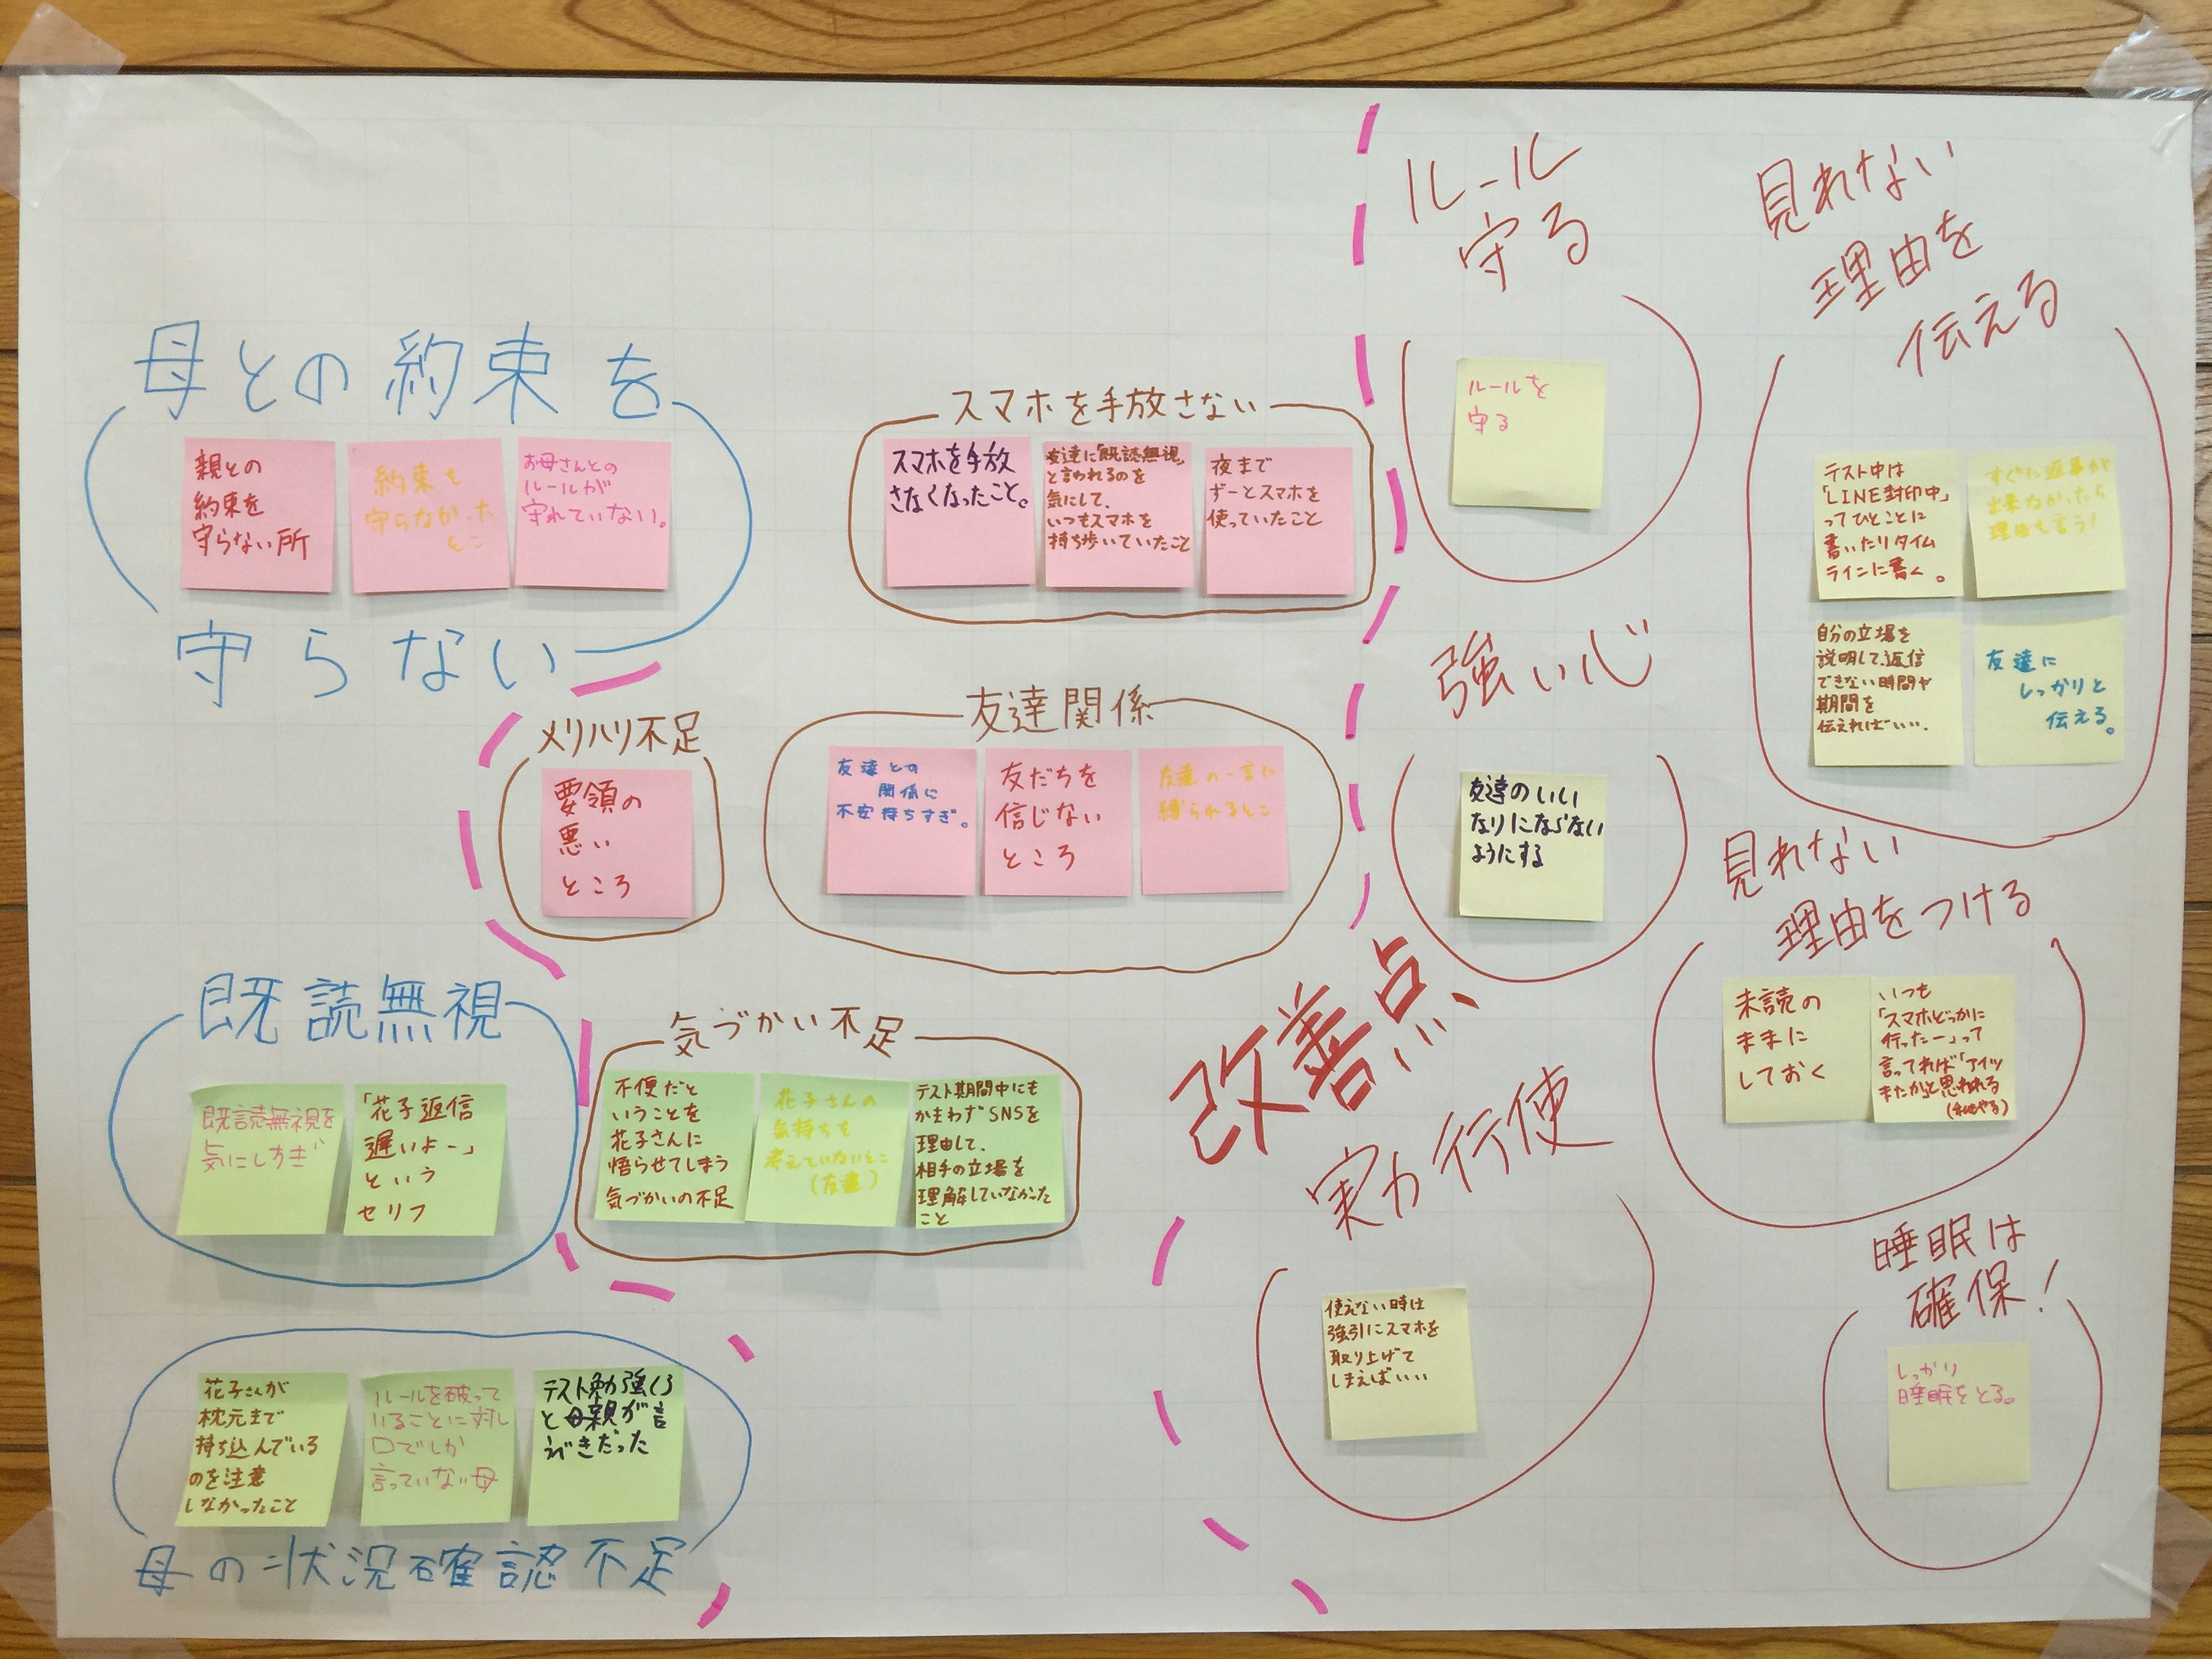 母との約束を
守らない
親との
約束を
守らない所
約束を
守らなかった
とこ
お母さんとの
ルールが
守れていない。
スマホを手放さない
スマホを手放
さなくなったこと。
友達に「既読無視」
と言われるのを
気にして、
いつもスマホを
持ち歩いていたこと
夜まで
ずーとスマホを
使っていたこと
メリハリ不足
要領の
悪い
ところ
友達関係
友達との
関係に
不安持ちすぎ。
友だちを
信じない
ところ
友達の一言に
縛られるとこ
既読無視
既読無視を
気にしすぎ
「花子返信
遅いよー」
という
セリフ
気づかい不足
不便だと
いうことを
花子さんに
悟らせてしまう
気づかいの不足
花子さんの
気持ちを
考えていないとこ
(友達)
テスト期間中にも
かまわずSNSを
理由して、
相手の立場を
理解していなかった
こと
花子さんが
枕元まで
持ち込んでいる
のを注意
しなかったこと
ルールを破って
いることに対し
口でしか
言っていない母
テスト勉強しろ
と母親が言
うべきだった
母の状況確認不足
改善点
ルール
守る
ルールを
守る
強い心
友達のいい
なりにならない
ようにする
実力行使
使えない時は
強引にスマホを
取り上げて
しまえばいい
見れない
理由を
伝える
テスト中は
「LINE封印中」
ってひとことに
書いたりタイム
ラインに書く。
すぐに返事が
出来なかったら
理由も言う!
自分の立場を
説明して、返信
できない時間や
期間を
伝えればいい。
友達に
しっかりと
伝える。
見れない
理由をつける
未読の
ままに
しておく
いつも
「スマホどっかに
行ったー」って
言ってれば「アイツ
またかと思われる
睡眠は
確保!
しっかり
睡眠をとる。